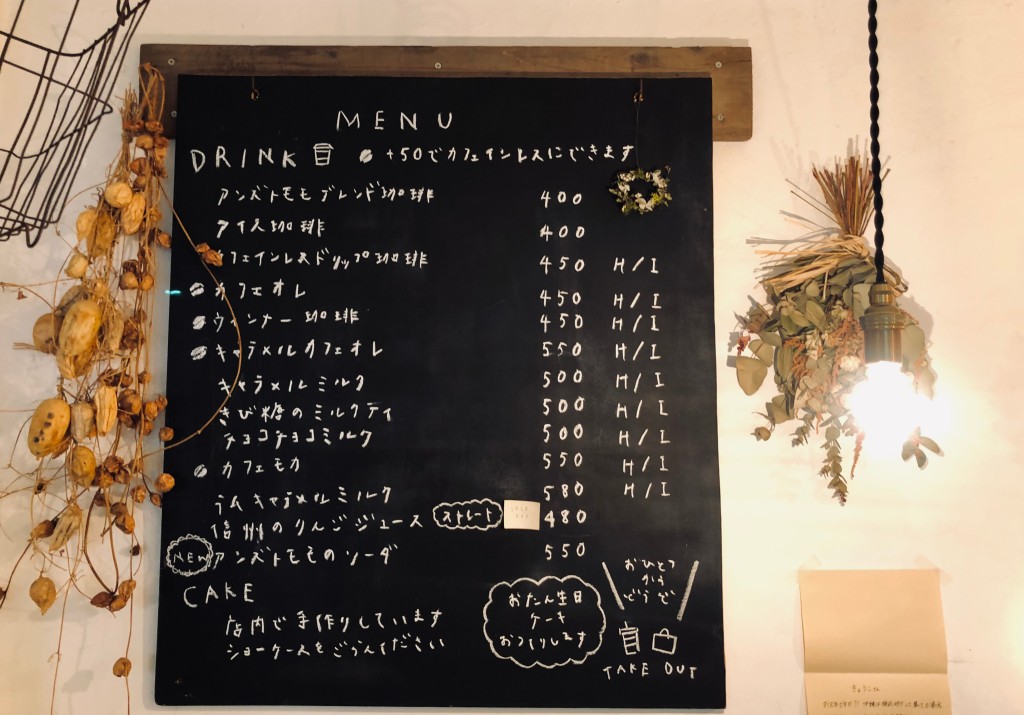 MENU
DRINK +50でカフェインレスにできます
アンズトモモブレンド珈琲 400
アイス珈琲 400
カフェインレスドリップ珈琲 450 H/I
カフェオレ 450 H/I
ウィンナー珈琲 450 H/I
キャラメルカフェオレ 550 H/I
キャラメルミルク 500 H/I
きび糖のミルクティ 500 H/I
チョコチョコミルク 500 H/I
カフェモカ 550 H/I
ラムキャラメルミルク 580 H/I
信州のりんごジュース ストレート 480
NEW アンズトモモのソーダ 550
CAKE
店内で手作りしています
ショーケースをごらんください
おたん生日
ケーキ
おつくりします
おひとつ
から
どうぞ
TAKE OUT